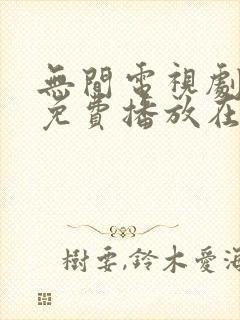 無間電視劇
免費播放在
樹要,鈴木愛海